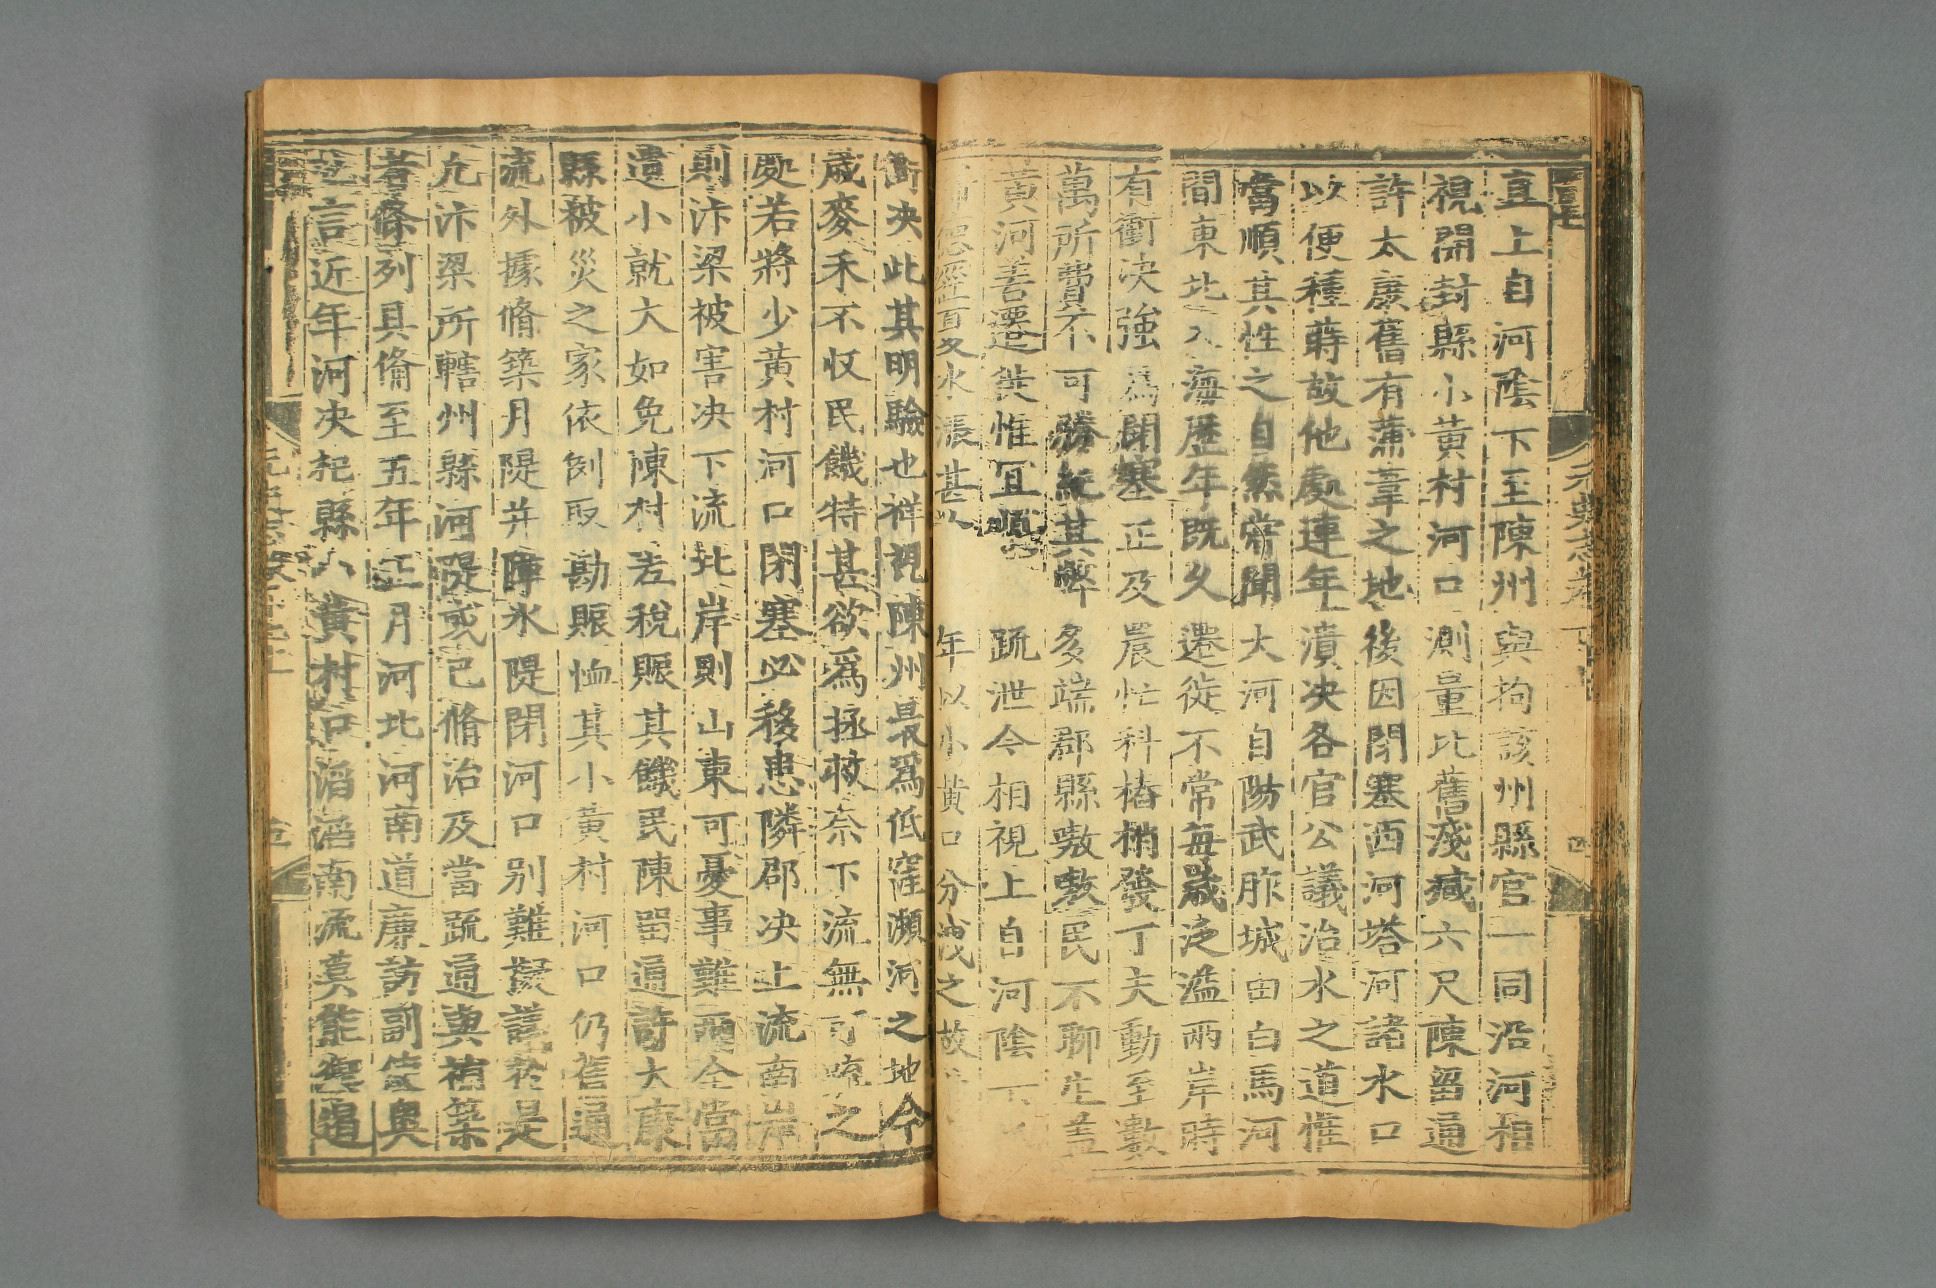 直上自河陰下至陳州與拘該州縣官一同沿河相
視開封縣小黃村河口測量比舊淺減六尺陳留通
許太康舊有蒲葦之地後因閉塞西河塔河諸水口
以便種蒔故他處連年潰决各官公議治水之道惟
當順其性之自然嘗聞大河自陽武胙城由白馬河
間東北入海歷年既久遷徙不常每歲泛溢兩岸時
有衝决強爲閉塞正及農忙科樁梢發丁夫動至數
萬所費不可勝紀其弊多端郡縣嗷嗷民不聊生蓋
黃河善遷徙惟宜順疏泄今相視上自河陰下
水漲甚以年以小黃口分洩之故
衝决此其明驗也詳視陳州最爲低窪瀕河之地今
歲麥禾不收民饑特甚欲爲拯救奈下流無可疏之
處若將少黃村河口閉塞必移患隣郡决上流南岸
則汴梁被害决下流北岸則山東可憂事難兩全當
遺小就大如免陳村差稅賑其饑民陳留通許太康
縣被災之家依例取勘賑恤其小黃村河口仍舊通
流外據脩築月隄并障水隄閉河口别難擬議於是
凡汴梁所轄州縣河隄或已脩治及當疏通與補築
者條列具備至五年正月河北河南道廉訪副使奥
言近年河决杞縣小黃村口滔滔南流莫能禦遏